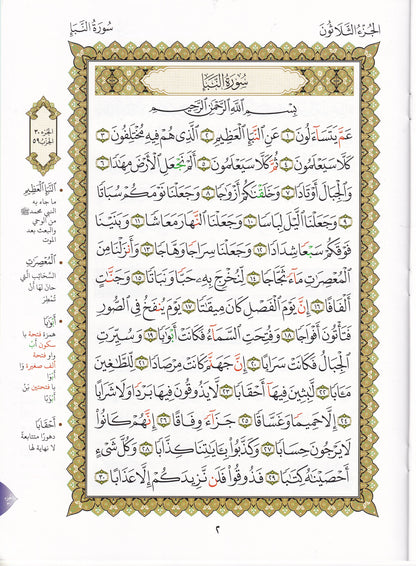 سورة النبإ
الجزء الثلاثون
سورة النبإ
بسم الله الرحمن الرحيم
عم يتساءلون ١ عن النبإ العظيم ٢ الذي هم فيه مختلفون ٣
كلا سيعلمون ٤ ثم كلا سيعلمون ٥ ألم نجعل الأرض مهدا ٦
والجبال أوتادا ٧ وخلقنكم أزوجا ٨ وجعلنا نومكم سباتا
٩ وجعلنا اليل لباسا ١٠ وجعلنا النهار معاشا ١١ وبنينا
فوقكم سبعا شدادا ١٢ وجعلنا سراجا وهاجا ١٣ وأنزلنا من
المعصرت ماء ثجاجا ١٤ لنخرج به حبا ونباتا ١٥ وجنت
ألفافا ١٦ إن يوم الفصل كان ميقتا ١٧ يوم ينفخ في الصور
فتأتون أفواجا ١٨ وفتحت السماء فكانت أبوبا ١٩ وسيرت
الجبال فكانت سرابا ٢٠ إن جهنم كانت مرصادا ٢١ للطغين
مءابا ٢٢ لبثين فيها أحقابا ٢٣ لا يذوقون فيها بردا ولا شرابا
٢٤ إلا حميما وغساقا ٢٥ جزاء وفاقا ٢٦ إنهم كانوا
لا يرجون حسابا ٢٧ وكذبوا بءايتنا كذابا ٢٨ وكل شيء
أحصينه كتبا ٢٩ فذوقوا فلن نزيدكم إلا عذابا ٣٠
الجزء ٣٠
الحزب ٥٩
النبإ العظيم
ما جاء به
النبي محمد ﷺ
من الوحي
والبعث بعد
الموت
المعصرت
السحائب التي
حان لها أن
تمطر
أبوبا
همزة فتحة با
سكون أب
واو فتحة
ألف صغيرة وا
با فتحتين بن
أبوبا
أحقابا
دهورا متتابعة
لا نهاية لها
٢